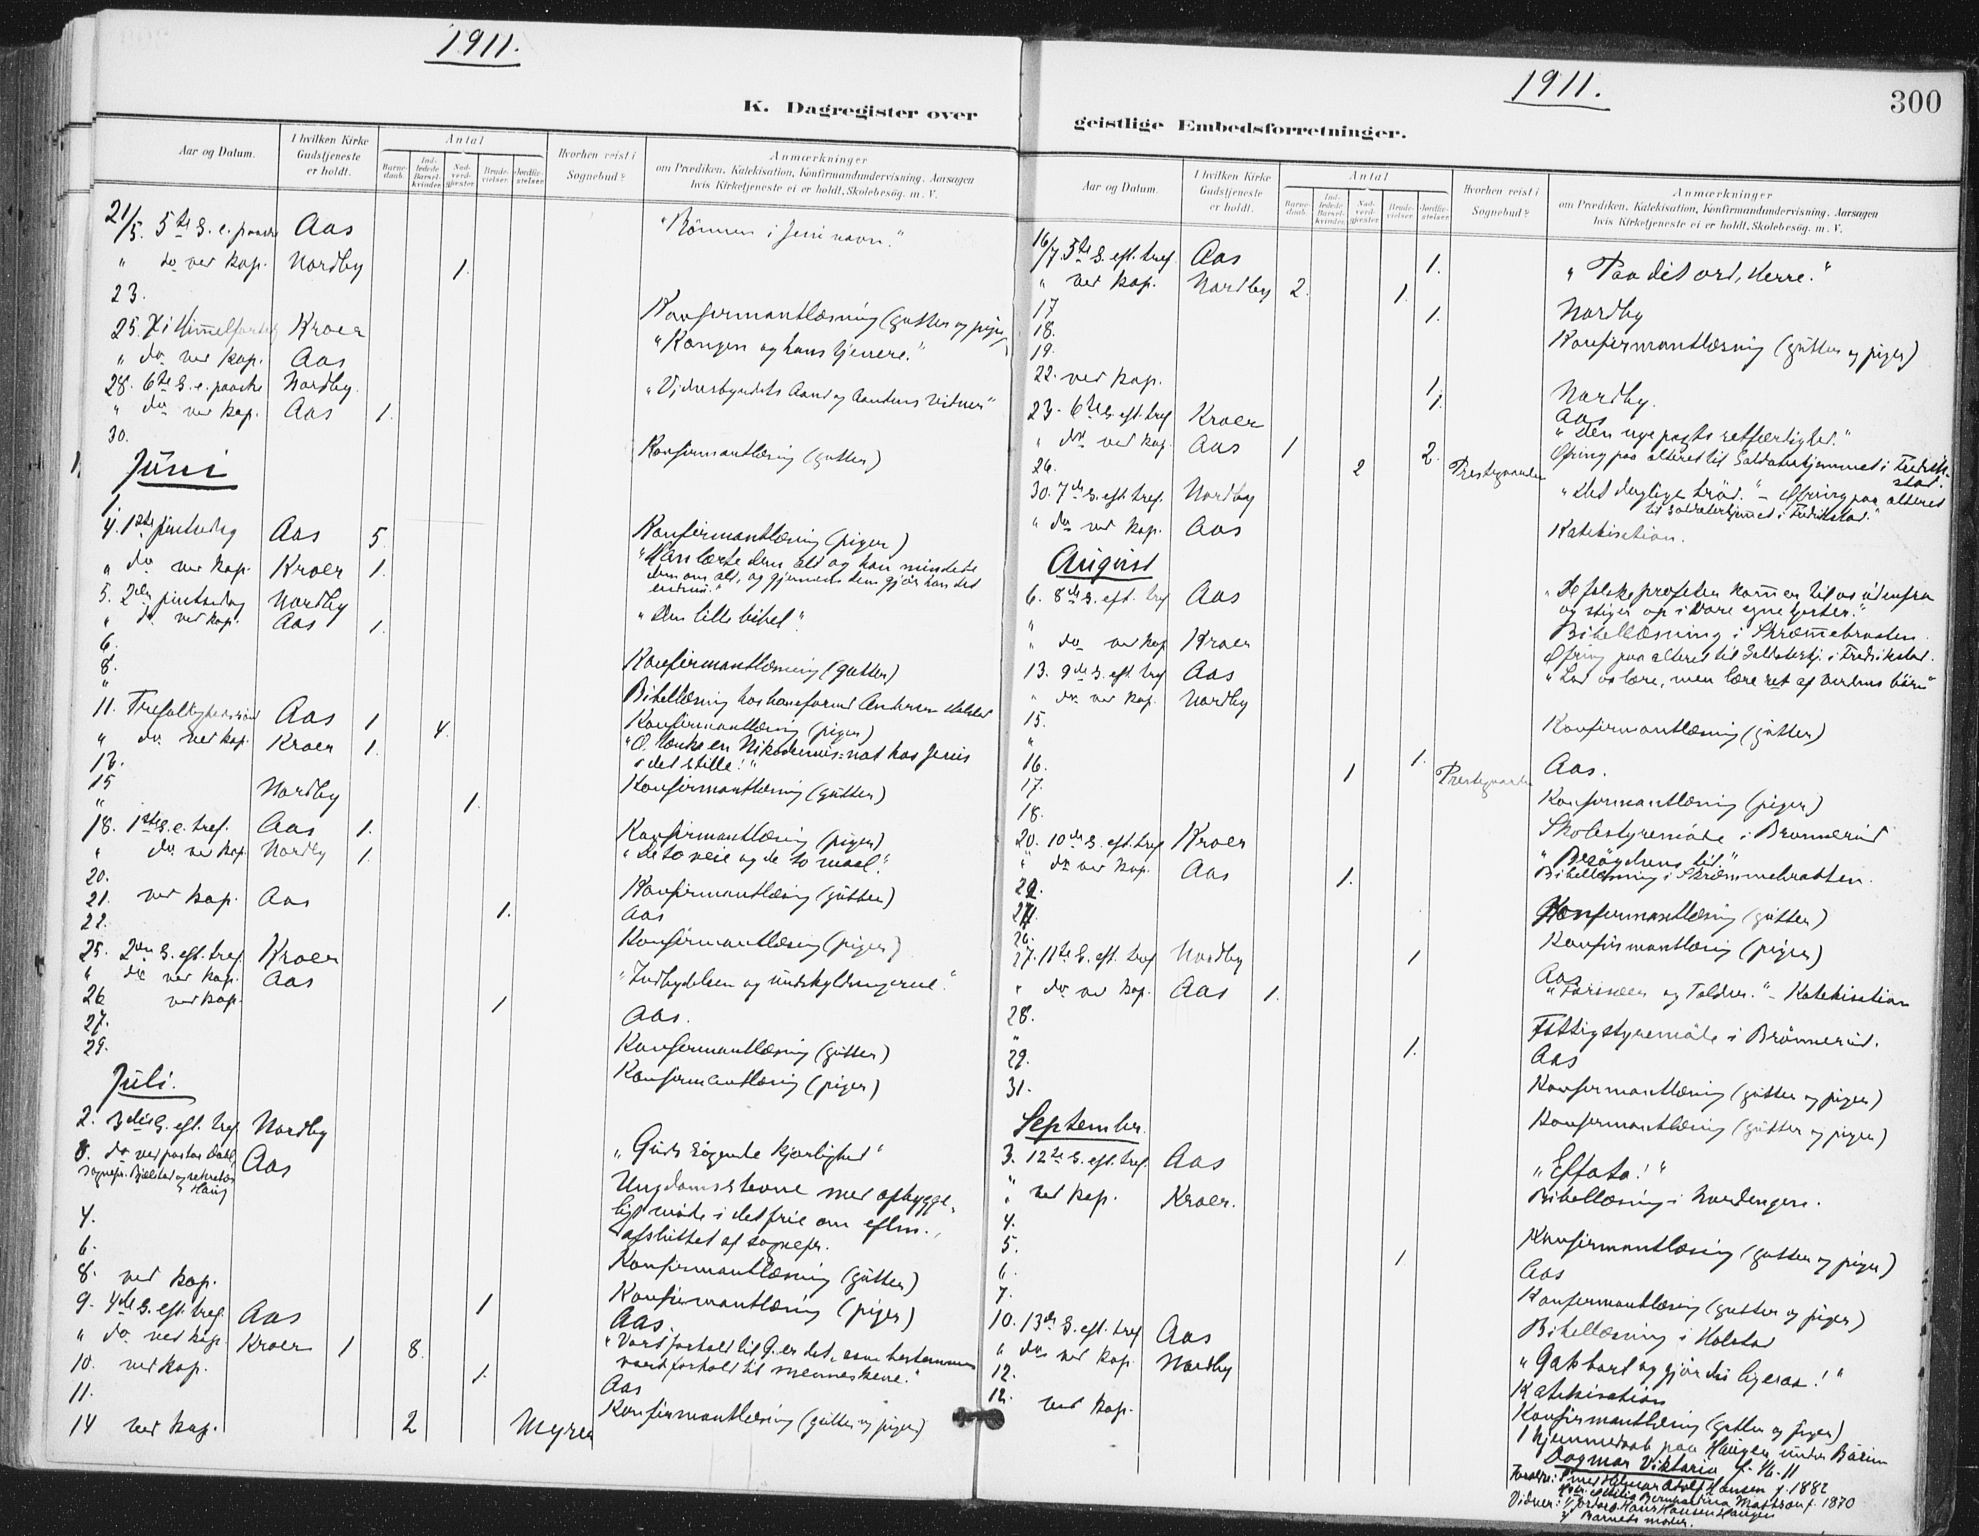 1911.
K. Dagregister over
Aar og Datum.
I hvilken Kirke Gudstjeneste er holdt.
Antal
Barnedaab.
Indledede Barselkvinder.
Nadverdgjester
Brudevielser
Jordfæstelser
Hvorhen reist i Sognebud?
Anmærkninger
om Prædiken, Katekisation, Konfirmandundervisning, Aarsagen
hvis Kirketjeneste ei er holdt, Skolebesøg, m. V.
21/5. 5te S. e. paaske Aas "Bønnen i Jesu navn."
" do ved kap. Nordby 1.
23. Konfirmantlæsning (gutter og piger)
25. Kr. Himmelfartsdg Kroer "Kongen og hans tjenere."
" do ved kap. Aas
28. 6te S. e. paaske Nordby. "Vidnesbyrdets Aand og Aandens vidner"
" do ved kap. Aas 1.
30. Konfirmantlæsning (gutter)
Juni
1. Konfirmantlæsning (piger)
4. 1ste pintsedag Aas 5. "Han lærte dem alt og han mindede
dem om alt, og gjennem dem gjør han det
endnu."
" do ved kap. Kroer 1.
5. 2den pintsedag Nordby "Den lille bibel".
" do. ved kap. Aas 1.
6. Konfirmantlæsning (gutter)
8. Bibellæsning hos Andersen Holstad
" Konfirmantlæsning (piger)
11. Trefoldighedssønd Aas 1 4. "O, tænk en Nikodemus-nat hos Jesus
i det stille!"
" do. ved kap. Kroer 1.
13. Konfirmantlæsning (gutter)
15 Nordby 1.
" Konfirmantlæsning (piger)
18. 1ste S. e. tref. Aas 1. "De to veie og de to maal."
" do ved kap. Nordby 1.
20. Konfirmantlæsning (gutter)
21. ved kap. Aas 1. Aas
22. Konfirmantlæsning (piger)
25. 2den S. eft. tref. Kroer "Indbydelsen og undskyldningerne."
" do ved kap. Aas
26 ved kap. 1 Aas.
27. Konfirmantlæsning (gutter)
29. Konfirmantlæsning (piger)
Juli.
2. 3die S. eft. tref. Nordby "Guds søgende kjærlighed"
" do ved pastor Dahl,
sognepr. Bjelstad og sekretær
Haug Aas Ungdomsstevne med opbygge-
ligt møde i det frie om eftm.,
afsluttet af sognepr.
4. Konfirmantlæsning (gutter)
6. Konfirmantlæsning (piger)
8. ved kap. 1 Aas.
9. 4de S. eft. tref. Aas "Vort forhold til G. er det, som bestemmer
vort forhold til menneskene."
" do ved kap. Kroer 1 8.
10. ved kap. 1. Aas
11. Konfirmantlæsning (gutter og piger)
14 ved kap. 2 Myrer
1911.
300
geistlige Embedsforretninger.
Aar og Datum.
I hvilken Kirke Gudstjeneste er holdt.
Antal
Barnedaab.
Indledede Barselkvinder.
Nadverdgjester
Brudevielser
Jordfæstelser.
Hvorhen reist i Sognebud?
Anmærkninger
om Prædiken, Katekisation, Konfirmandundervisning, Aarsagen
hvis Kirketjeneste ei er holdt, Skolebesøg, m. V.
16/7. 5te S. eft. tref. Aas 1. "Paa dit ord, Herre."
" ved kap. Nordby 2. 1.
17 1. Nordby
18. Konfirmantlæsning (gutter og piger)
19. 1. Nordby.
22. ved kap. 1. Aas
23. 6te S. eft. tref Kroer "Den nye pagts retfærdighed."
" do ved kap. Aas 1 2. Ofring paa alteret til Soldaterhjemmet i Fredrik-
stad.
26. 2 Prestegaarden
30. 7de S. eft. tref. Nordby "Det daglige brød." - Ofring paa alteret
til Soldaterhjemmet i Fredrikstad."
" do ved kap. Aas Katekisation.
August
6. 8de S. eft. tref Aas "De falske profeter kommer til os udenfra
og stiger op i vore egne hjerter."
" Bibellæsning i Skræmebraaten.
" do ved kap Kroer Ofring paa alteret til Soldaterhj. i Fredrikstad.
13. 9de S. eft. tref Aas "Lad os lære, men lære ret af verdens børn"
" do. ved kap. Nordby
15. Konfirmantlæsning (gutter)
" 1. Aas.
16. 1 Prestegaarden
17. Konfirmantlæsning (piger)
18. Skolestyremøde i Brønnerud
20. 10de S. eft. tref Kroer "Besøgelsens tid."
" do ved kap. Aas 1. Bibellæsning i Skræmmebraaten.
22. Konfirmantlæsning (gutter)
24. Konfirmantlæsning (piger)
26. 1 Aas
27. 11te S. eft. tref Nordby "Farisæer og Tolder." - Katekisation
" do ved kap. Aas 1.
28. Fattigstyremøde i Brønnerud.
" 1. Aas
29. Konfirmantlæsning (gutter og piger)
31. Konfirmantlæsning (gutter og piger)
September.
3. 12te S. eft. tref. Aas "Effata!"
" Bibellæsning i Nordengen.
" ved kap. Kroer.
4. Konfirmantlæsning (gutter og piger)
5. 1 Aas
6. Konfirmantlæsning (gutter og piger)
7. Bibellæsning i Holstad
10. 13de S. eft. tref Aas "Gak bort og gjør du ligesaa!"
" do ved kap. Nordby Katekisation
12. Konfirmantlæsning (gutter og piger)
12. ved kap. 1 hjemmedaab paa Haugen under Bølum
Dagmar Viktoria
Forældre: Hansen f. 1882
Mattson f. 1870
Vidner: Hans Hansen Haugen
Barnets moder.